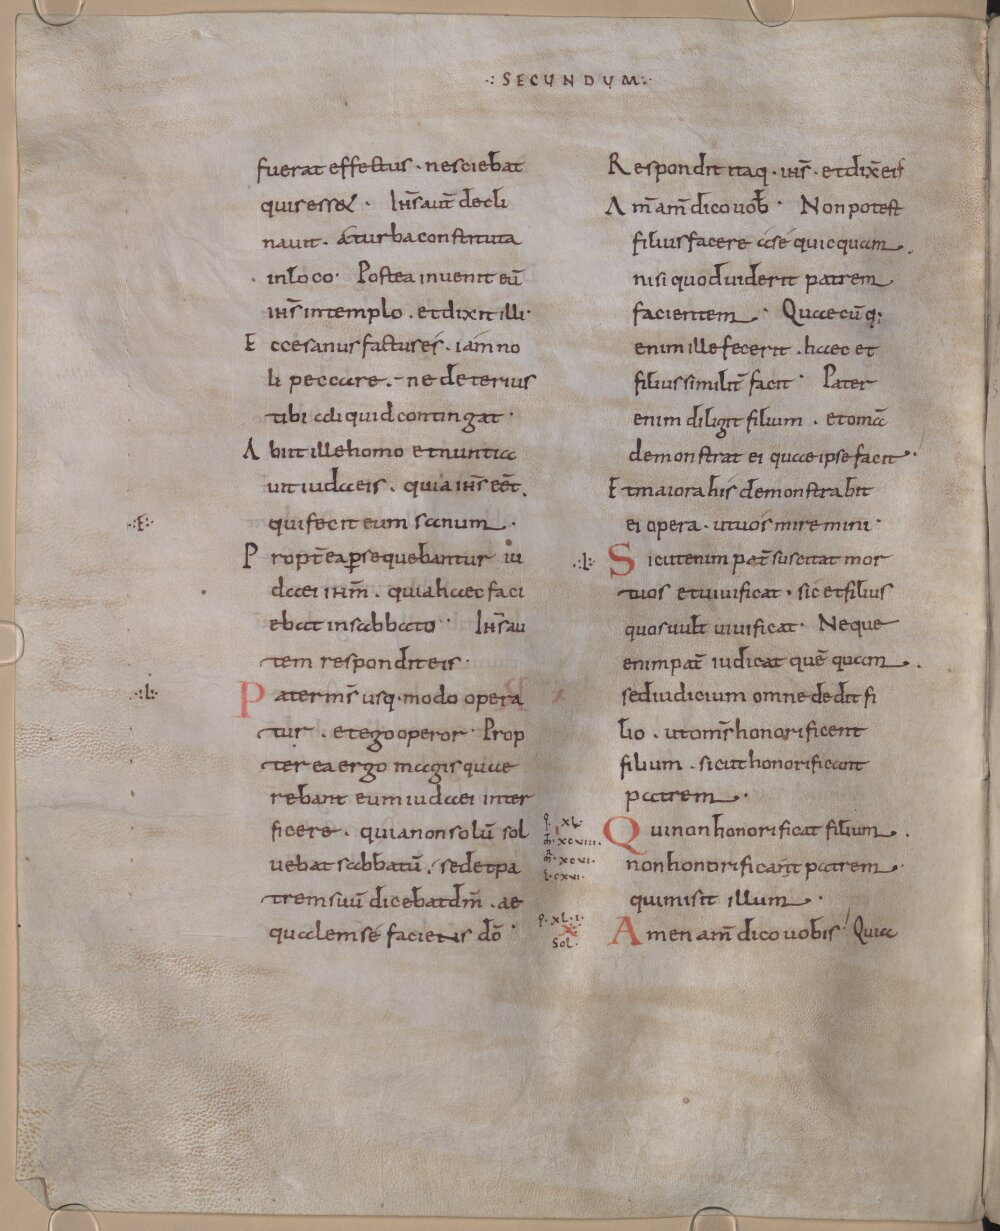 ·: SECUNDUM :·
fuerat effectus · nesciebat
quis esset · Ih̄s aut̄ decli
nauit · a turba constituta
in loco · Postea inuenit eū
ih̄s in templo · et dixit illi ·
Ecce sanus factus és · iam no
li peccare · ne deterius
tibi aliquid contingat ·
Abiit ille homo et nuntia
uit iudaeis · quia ih̄s eēt ·
qui fecit eum sanum ·
Propt̄ea p̄sequebantur iu
daei ih̄m · quia haec faci
ebat in sabbato · Ih̄s au
tem respondit eis ·
Pater m̄s usq· modo opera
tur · et ego operor · Prop
terea ergo magis quae
rebant eum iudaei inter
ficere · quia non solū sol
uebat sabbatū · sed et pa
trem suū dicebat dm̄ · ae
qualem sé faciens dō ·
·:E:·
·:L:·
Respondit itaq · ih̄s · et dix̄ eis
Am̄ am̄ dico uob̄ · Non potest
filius facere a sé quicquam ·
nisi quod uiderit patrem
facientem · Quaecūq;
enim ille fecerit · haec et
filius similit̄ facit · Pater
enim diligit filium · et om̄a
demonstrat ei quae ipse facit ·
Et maiora his demonstrabit
ei opera · ut uos miremini ·
·:L· Sicut enim pat̄ suscitat mor
tuos et uiuificat · sic et filius
quos uult uiuificat · Neque
enim pat̄ iudicat quē quam ·
sed iudicium omne dedit fi
lio · ut om̄s honorificent
filium · sicut honorificant
patrem ·
Qui non honorificat filium ·
non honorificat patrem ·
qui misit illum ·
Amen am̄ dico uobis · Quia
XL·
XCVIII·
XCVI·
L·CXVI·
XL·I·
X
SOL·